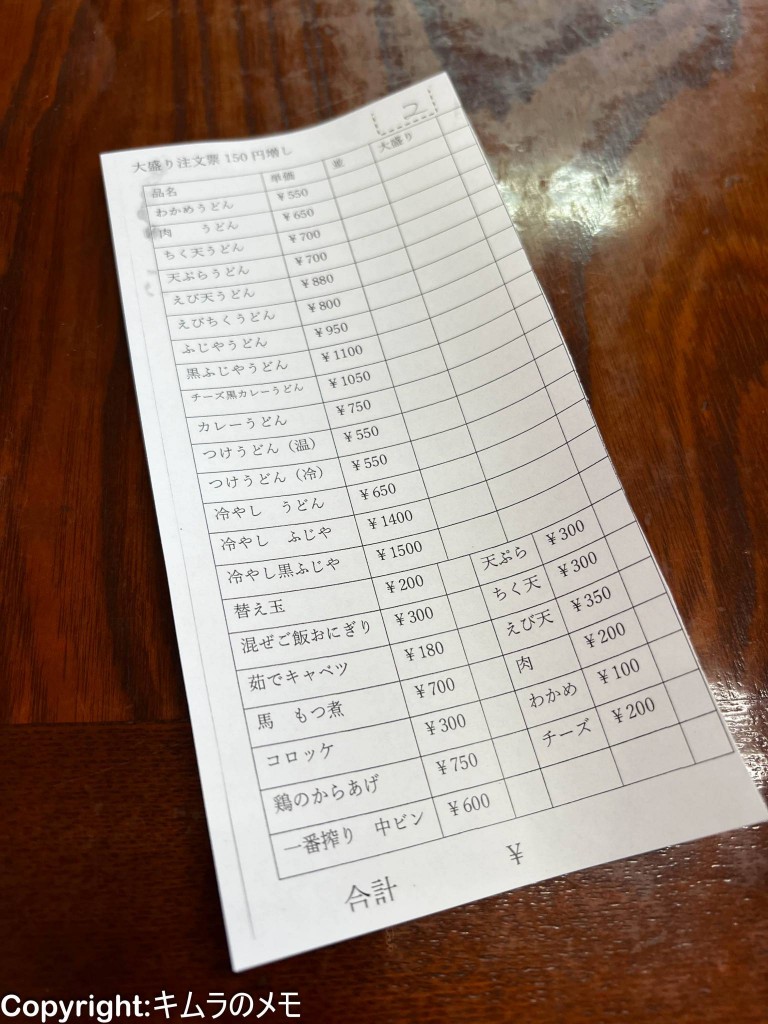 2
大盛り注文票 150円増し
品名 単価 並 大盛り
わかめうどん ¥550
肉　うどん ¥650
ちく天うどん ¥700
天ぷらうどん ¥700
えび天うどん ¥880
えびちくうどん ¥800
ふじやうどん ¥950
黒ふじやうどん ¥1100
チーズ黒カレーうどん ¥1050
カレーうどん ¥750
つけうどん（温） ¥550
つけうどん（冷） ¥550
冷やし　うどん ¥650
冷やし　ふじや ¥1400
冷やし黒ふじや ¥1500
替え玉 ¥200 天ぷら ¥300
混ぜご飯おにぎり ¥300 ちく天 ¥300
茹でキャベツ ¥180 えび天 ¥350
馬　もつ煮 ¥700 肉 ¥200
コロッケ ¥300 わかめ ¥100
鶏のからあげ ¥750 チーズ ¥200
一番搾り　中ビン ¥600
合計 ¥
Copyright:キムラのメモ